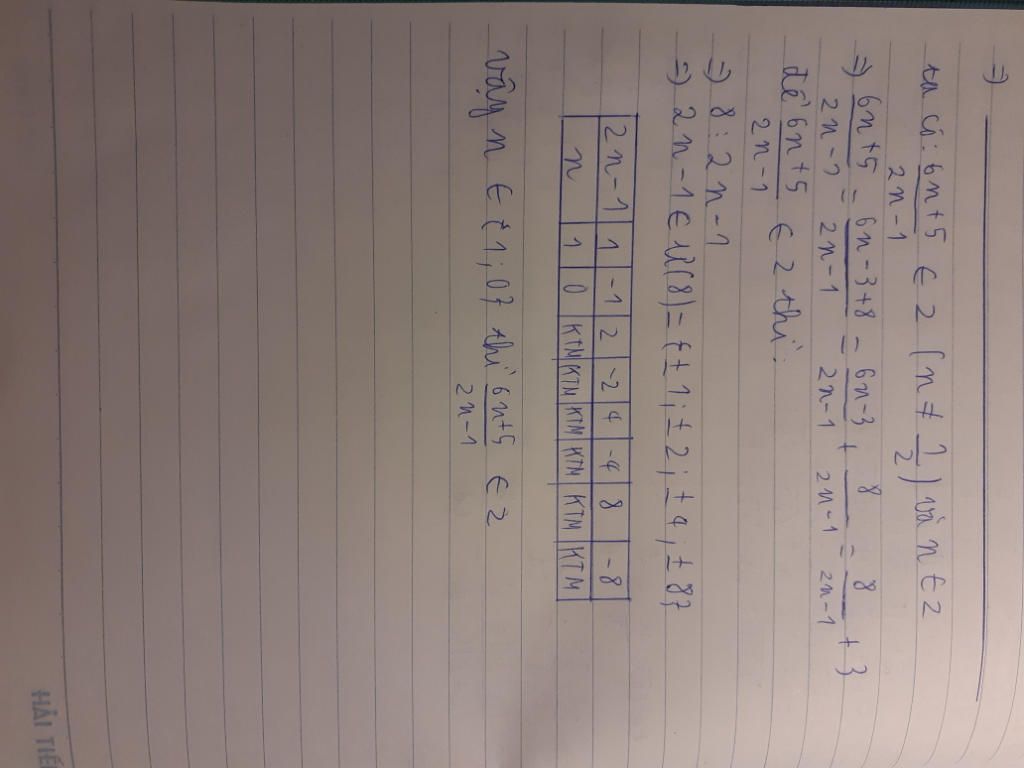 =)
ta có: 6n+5/2n-1 ∈ Z (n ≠ 1/2) và n ∈ Z
=) 6n+5/2n-1 = 6n-3+8/2n-1 = 6n-3/2n-1 + 8/2n-1 = 8/2n-1 + 3
để 6n+5/2n-1 ∈ Z thì:
=) 8 : 2n-1
=) 2n-1 ∈ Ư(8) = {±1; ±2; ±4; ±8}
2n-1 1 -1 2 -2 4 -4 8 -8
n 1 0 KTM KTM KTM KTM KTM KTM
Vậy n ∈ {1; 0} thì 6n+5/2n-1 ∈ Z